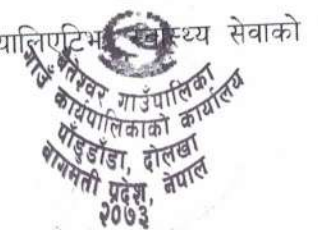 यालिएटिभ स्वास्थ्य सेवाको
वैतेश्वर गाउँपालिका
गाउँ कार्यपालिकाको कार्यालय
पाँडुडाँडा, दोलखा
बागमती प्रदेश, नेपाल
२०७३